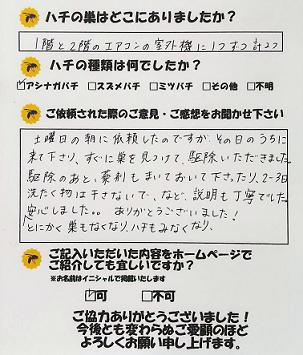 ハチの巣はどこにありましたか？
1階と2階のエアコンの室外機に1つずつ計2つ
ハチの種類は何でしたか？
☑アシナガバチ □スズメバチ □ミツバチ □その他 □不明
ご依頼された際のご意見・ご感想をお聞かせ下さい
土曜日の朝に依頼したのですが、その日のうちに
来て下さり、すぐに巣を見つけて、駆除いただきました。
駆除のあと、薬剤もまいておいて下さったり、2-3日
洗たく物は干さないで、など、説明も丁寧でした
安心しました。。ありがとうございました！
とにかく巣もなくなり、ハチもみなくなり、
ご記入いただいた内容をホームページで
ご紹介しても宜しいですか？
※お名前はイニシャルで掲載いたします
☑可 □不可
ご協力ありがとうございました！
今後とも変わらぬご愛顧のほど
よろしくお願い申し上げます。